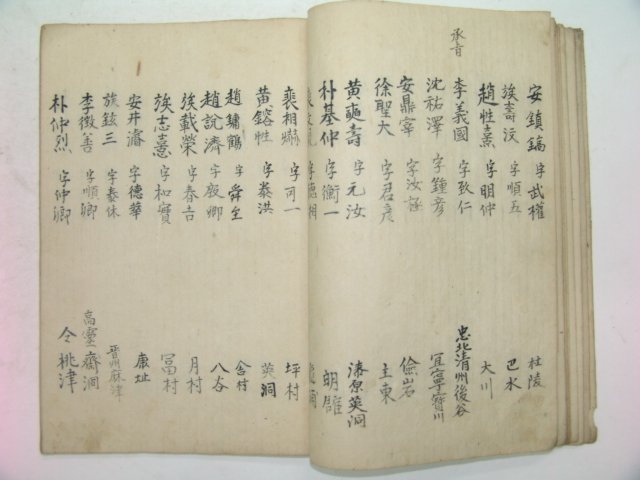 安鎭鎬 字武權 杜陵
族壽汶 字順五 巴水
趙性熹 字明仲 大川
承旨
李義國 字致仁 忠北清州後谷
沈祐澤 字鍾彦 宜寧寶川
安鼎宰 字汝 儉岩
徐聖大 字君彦 主東
黃 壽 字元汝 漆原英洞
朴基仲 字衡一 朗
字德相
裵相 字可一 坪村
黃鎔性 字泰洪 英洞
趙鏞鶴 字舜 含村
趙說濟 字 卿 八谷
族載榮 字春吉 月村
族志憙 字和寶 冨村
安井濬 字德華 康址
族鉉三 字泰休 晉州麻津
李徵善 字順卿 高靈齋洞
朴仲烈 字仲卿 仝桃津